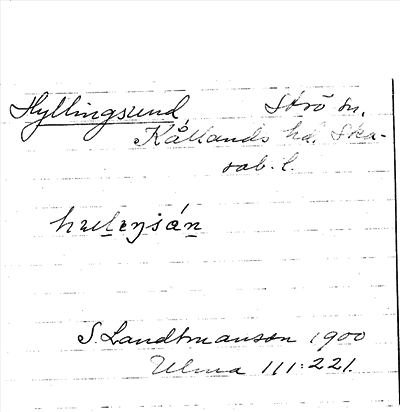 Hyllingsund, Strö sn,
Kållands hd. Ska-
rab. l.
S. Landtmanson 1900
Ulma 111:221.